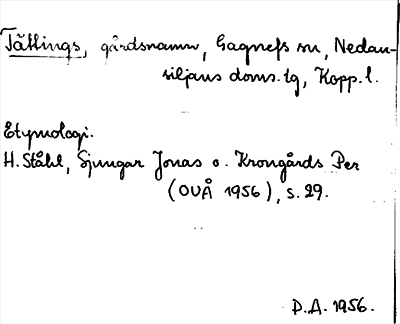 Tättings, gårdsnamn, Gagnefs sn, Nedan-
siljans doms.lg, Kopp.l.
Etymologi.
H. Ståhl, Sjungar Jonas o. Krongårds Per
(OUÅ 1956), s. 29.
D.A. 1956.